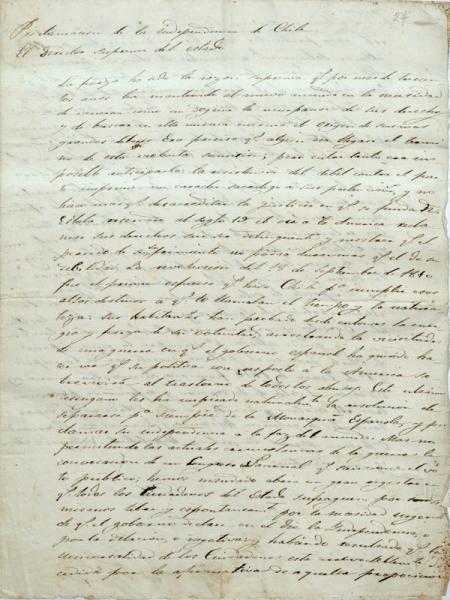 Proclamacion de la Independencia de Chile
El Director Supremo del estado
La fuerza ha sido la razon suprema qe por mas de trescien
tos años ha mantenido al nuevo mundo en la necesidad
de venerar como un dogma la usurpacion de sus derechos
y de buscar en ella misma el origen de sus mas
grandes deberes. Era preciso qe algun dia llegase el termi
no de esta violenta sumision; pero entre tanto era im
posible anticiparla: la resistencia del debil contra el fuer
te imprime un caracter sacrilego a sus pretenciones, y no
hace mas qe desacreditar la justicia en qe se fundan. Es
taba reservado al siglo 19 el oir a la America recla
mar sus derechos sin ser delinquente y mostrar qe el
periodo de su sufrimiento no podia durar mas qe el de su
debilidad. La revolucion del 18 de Septiembre de 1810
fue el primer esfuerzo qe hizo Chile pa cumplir esos
altos destinos a qe lo llamaban el tiempo y la natura
leza: sus habitantes han probado desde entonces la ener
gia y firmeza de su voluntad, arrostrando las vicisitudes
de una guerra en qe el gobierno español ha querido ha
cer ver qe su politica con respecto a la America so
brevivirá al trastorno de todos los abusos. Este ultimo
desengaño les ha inspirado naturalmente la resolucion de
separarse pa siempre de la Monarquia Española, y pro
clamar su independencia a la faz del mundo. Mas no
permitiendo las actuales circunstancias de la guerra la
convocacion de un Congreso Nacional qe sancione el vo
to publico, hemos mandado abrir un gran registro en
qe todos los Ciudadanos del Estado sufraguen por si
mismos libre y espontaneamente por la necesidad urgente
de qe el gobierno declare en el dia la Independencia, o
por la dilacion, o negativa: y habiendo resultado qe la
universalidad de los Ciudadanos está irrevocablemente de
cidida por la afirmativa de aquella proposicion